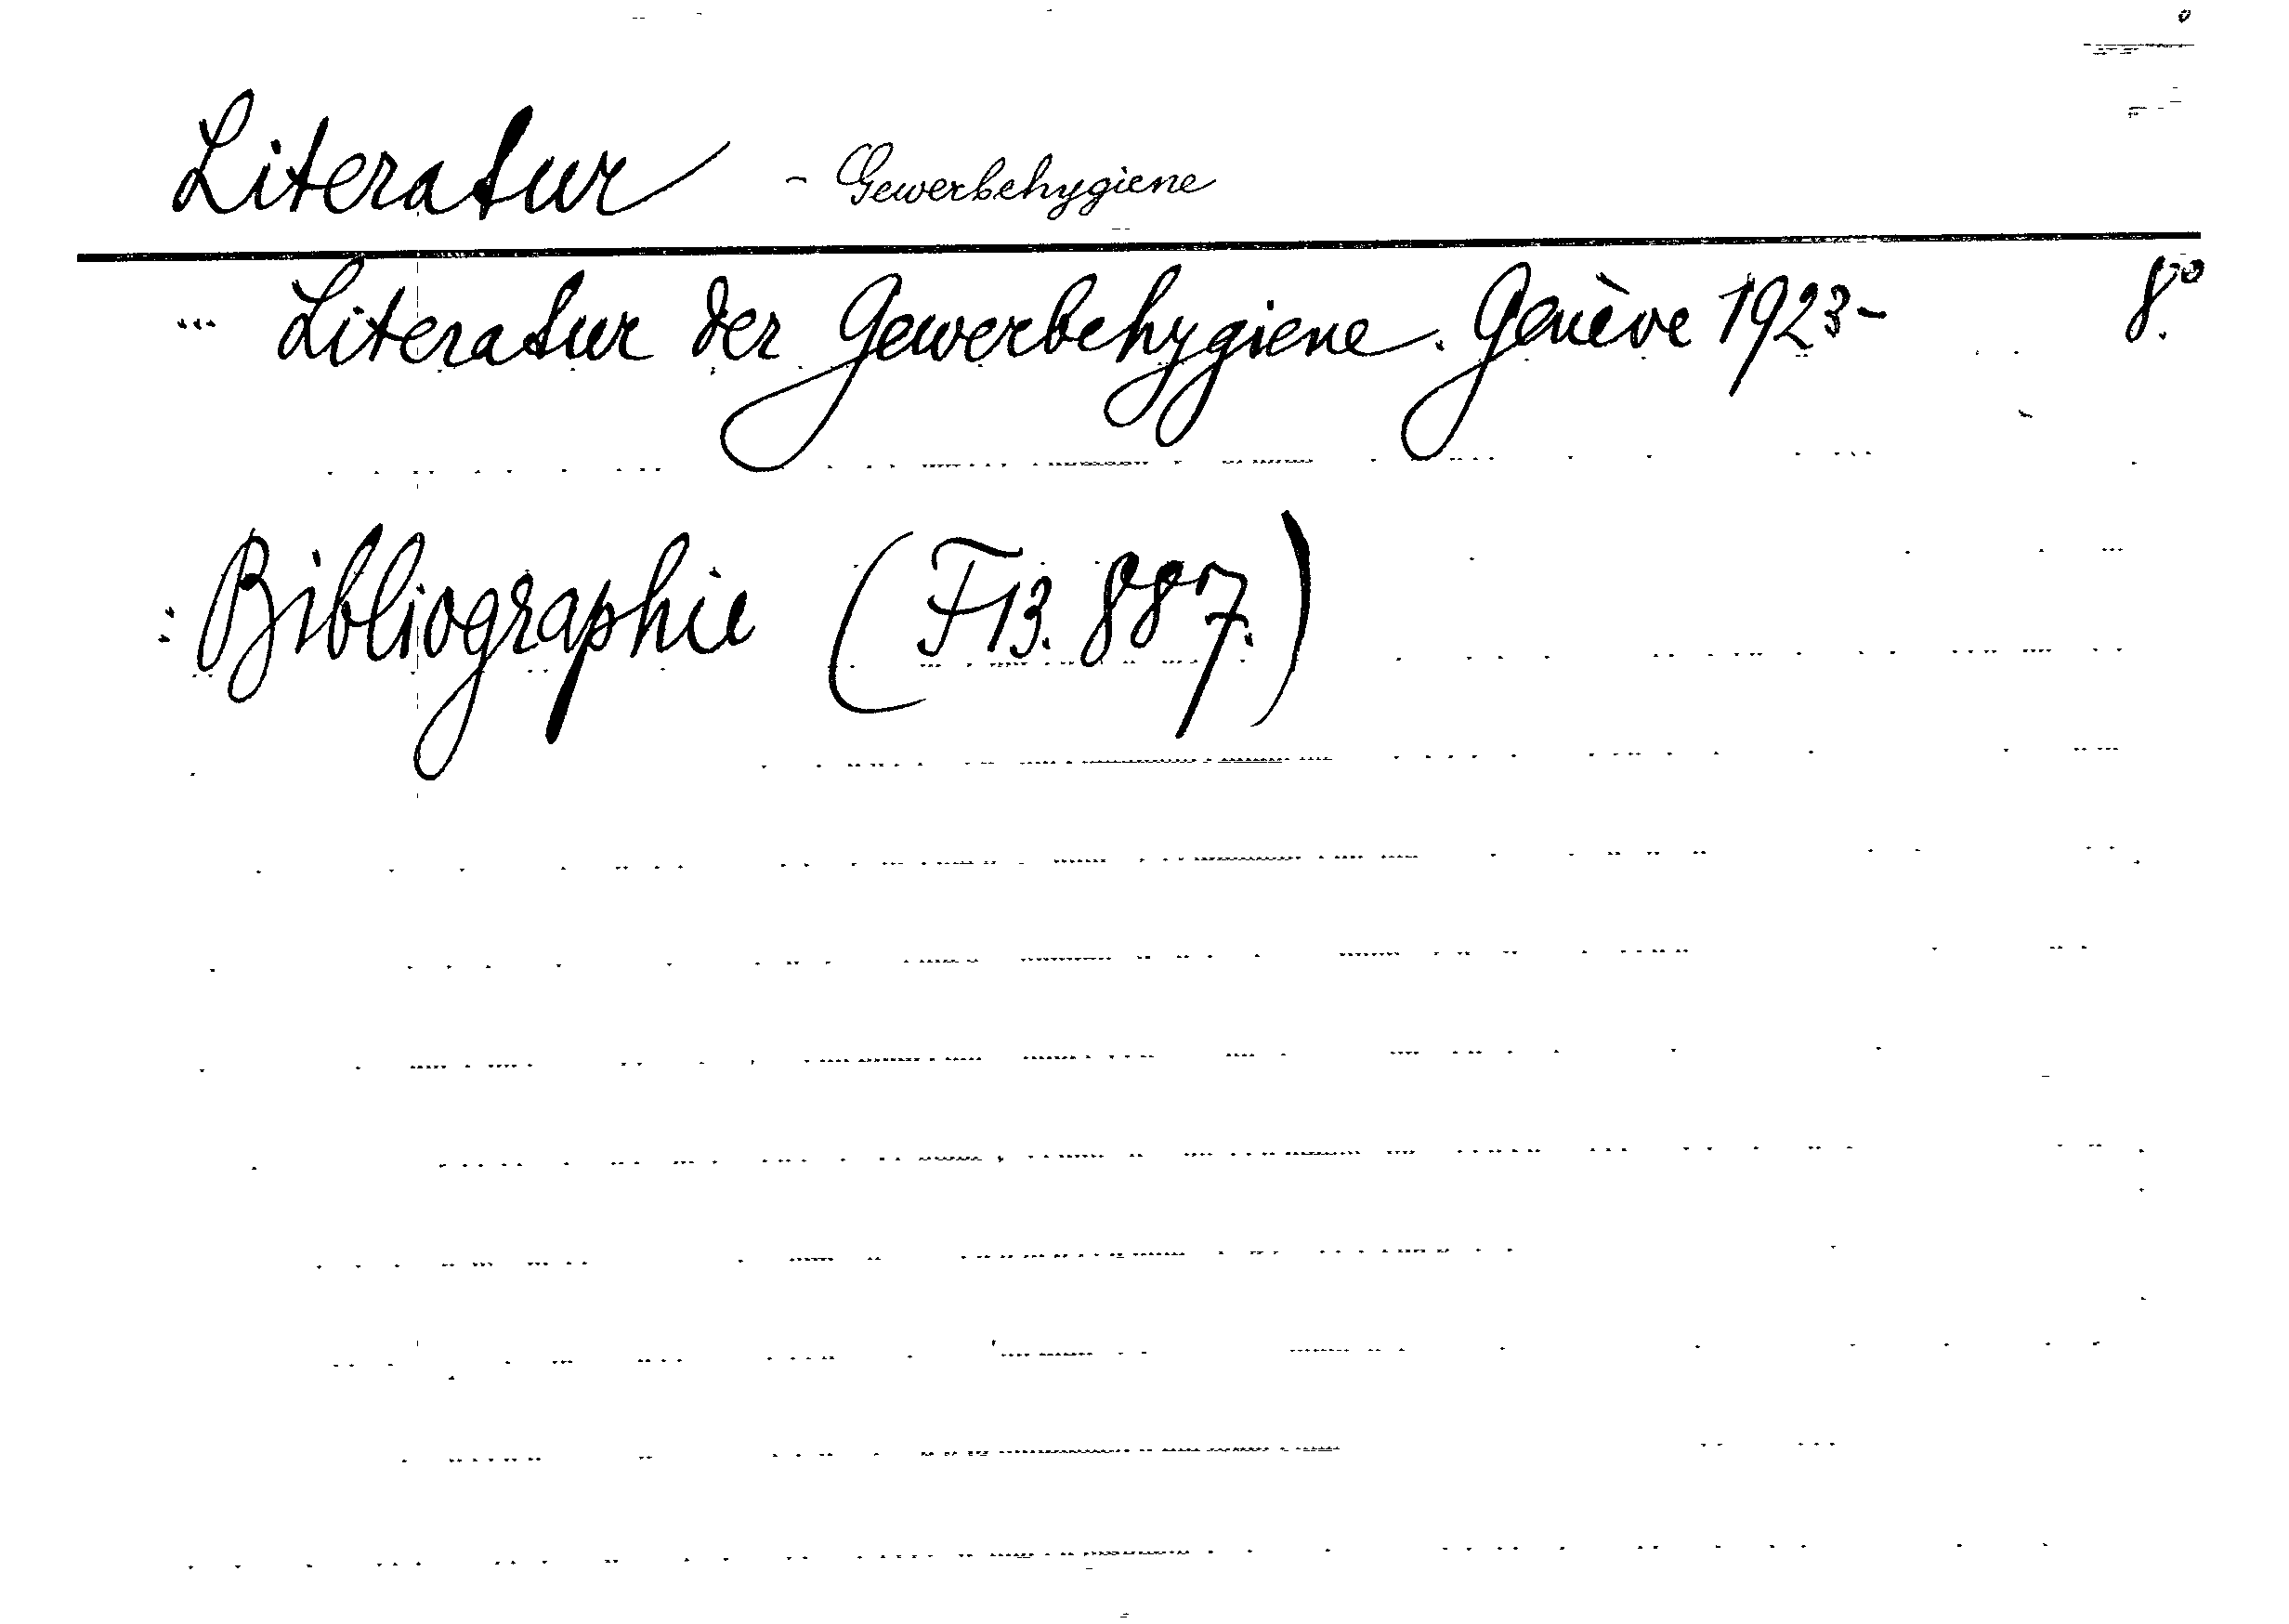 Literatur - Gewerbehygiene
... Literatur der Gewerbehygiene. Genève 1923- 8.º
: Bibliographie (F13. 887.)